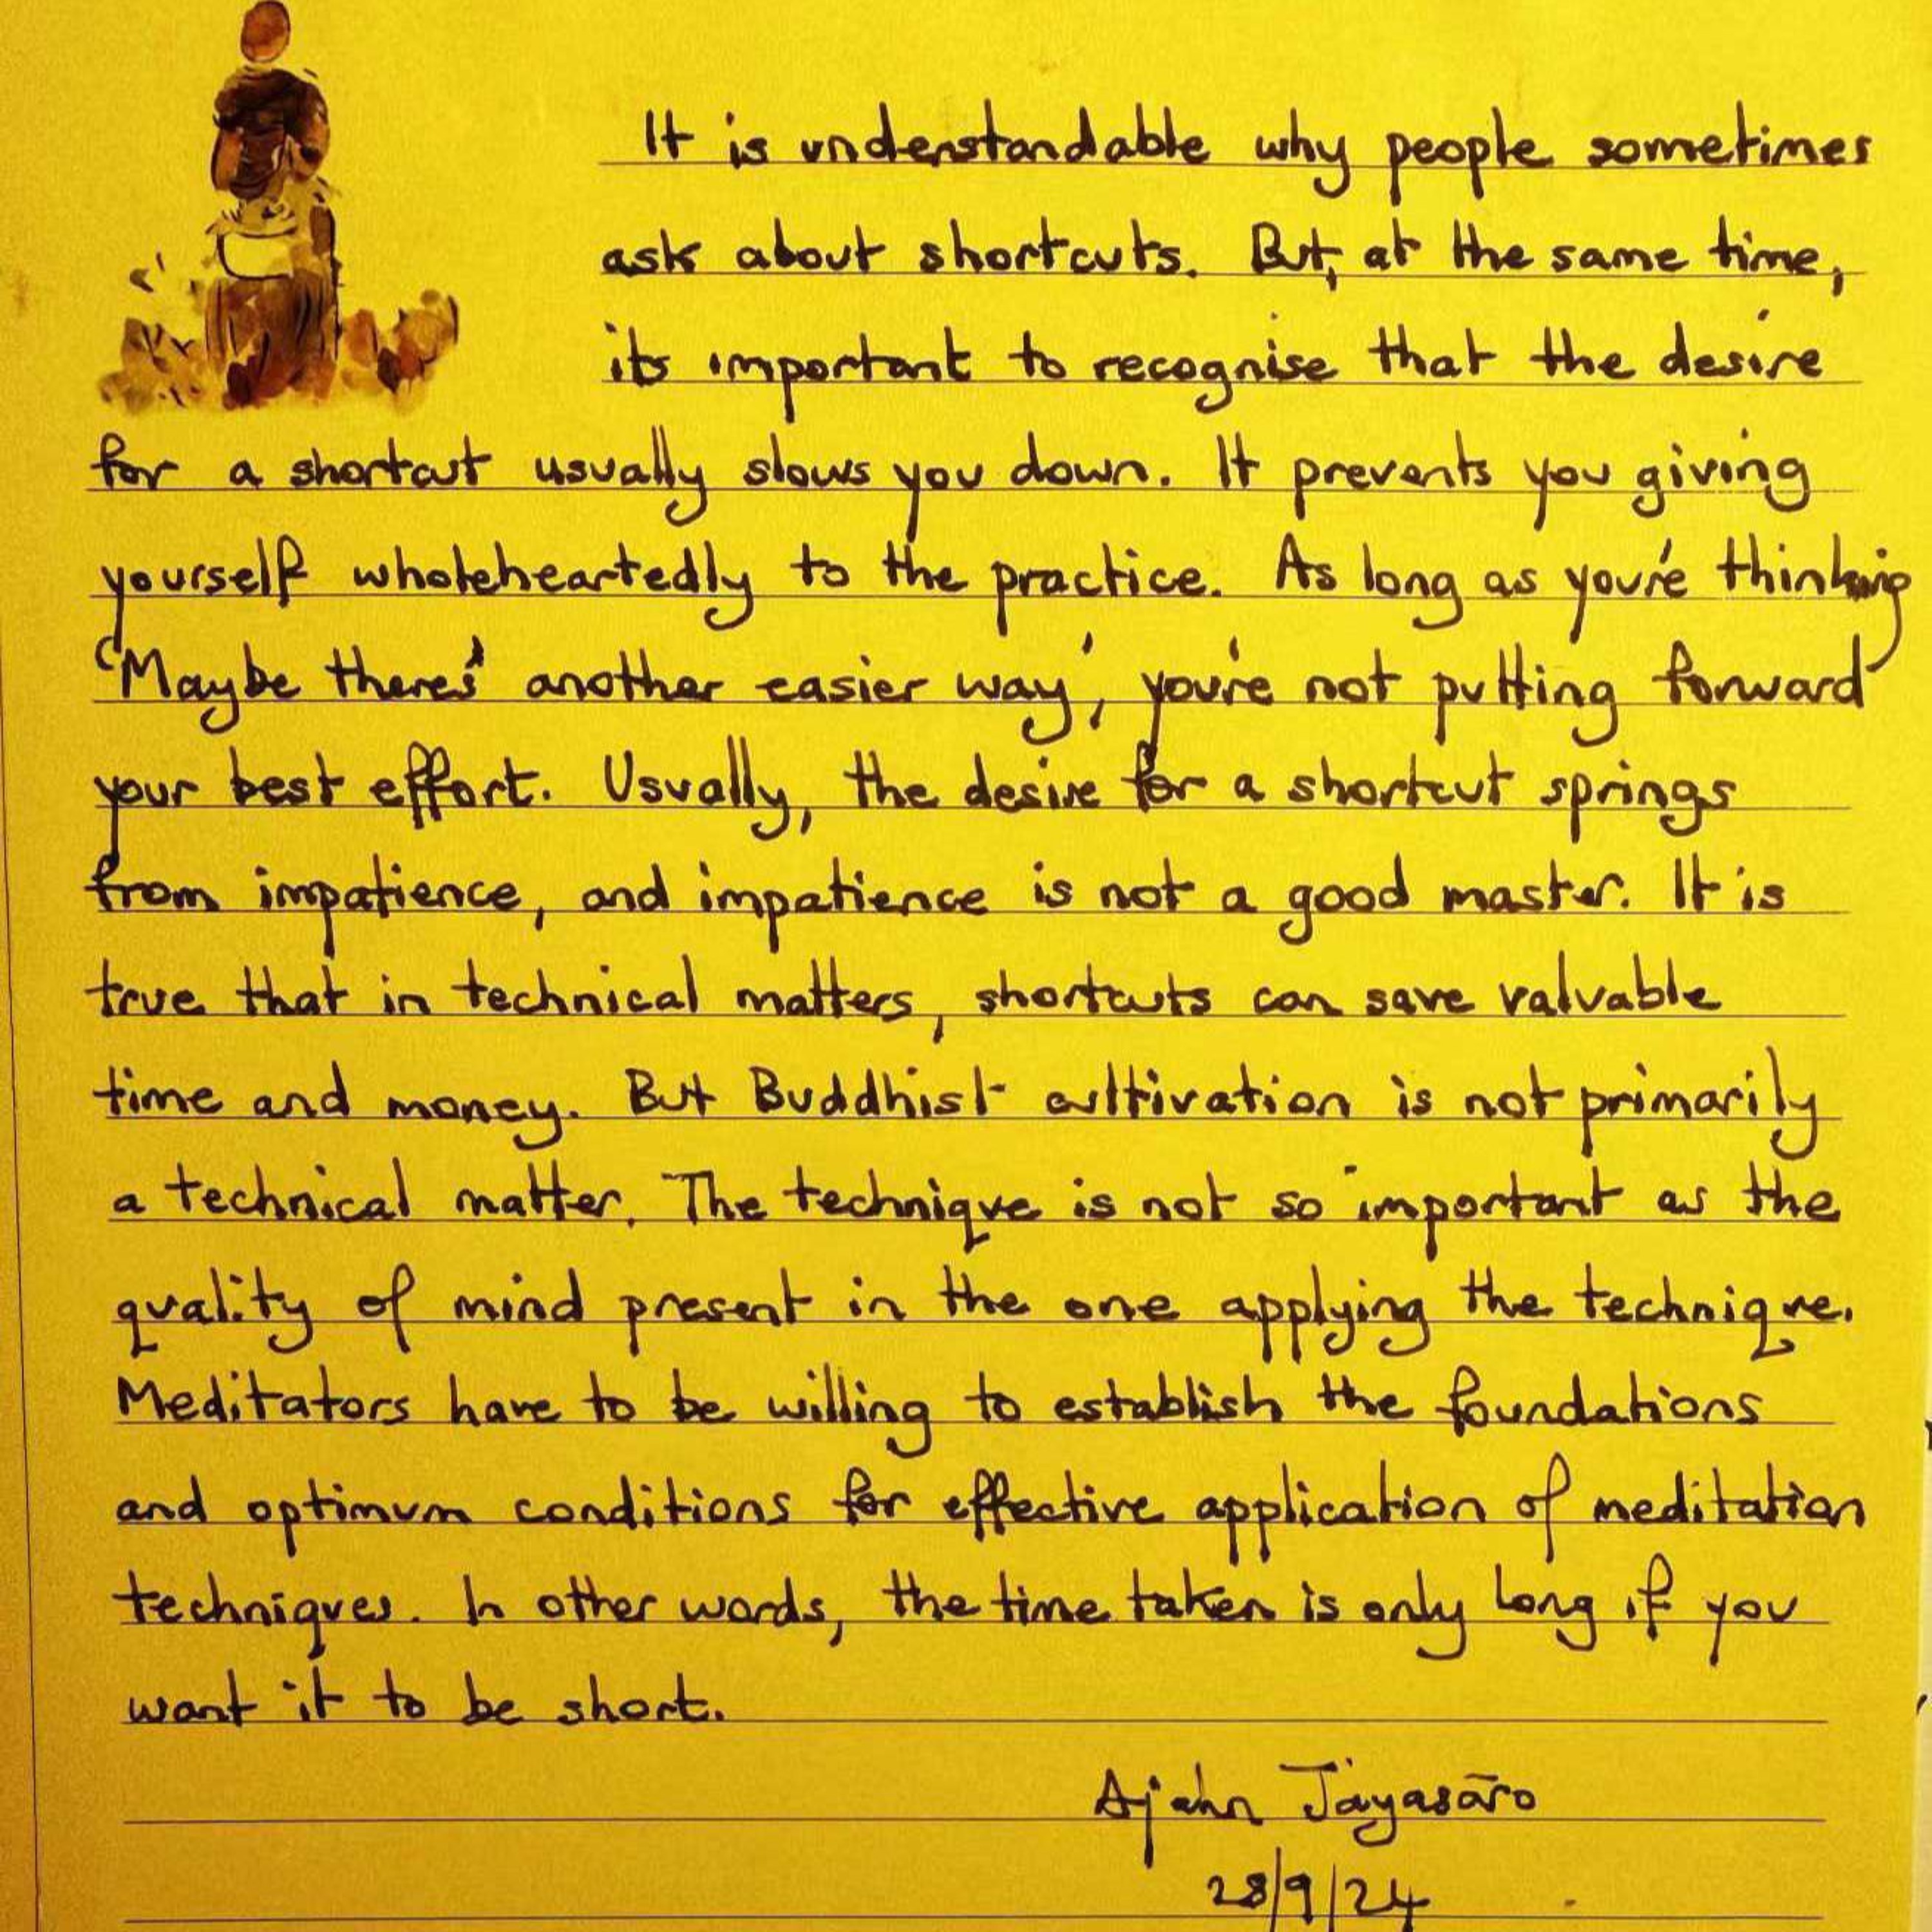 It is understandable why people sometimes
ask about shortcuts. But, at the same time,
it's important to recognise that the desire
for a shortcut usually slows you down. It prevents you giving
yourself wholeheartedly to the practice. As long as you're thinking
'Maybe there's another easier way', you're not putting forward
your best effort. Usually, the desire for a shortcut springs
from impatience, and impatience is not a good master. It is
true that in technical matters, shortcuts can save valuable
time and money. But Buddhist cultivation is not primarily
a technical matter. The technique is not so important as the
quality of mind present in the one applying the technique.
Meditators have to be willing to establish the foundations
and optimum conditions for effective application of meditation
techniques. In other words, the time taken is only long if you
want it to be short.
Ajahn Jayasāro
28/9/24